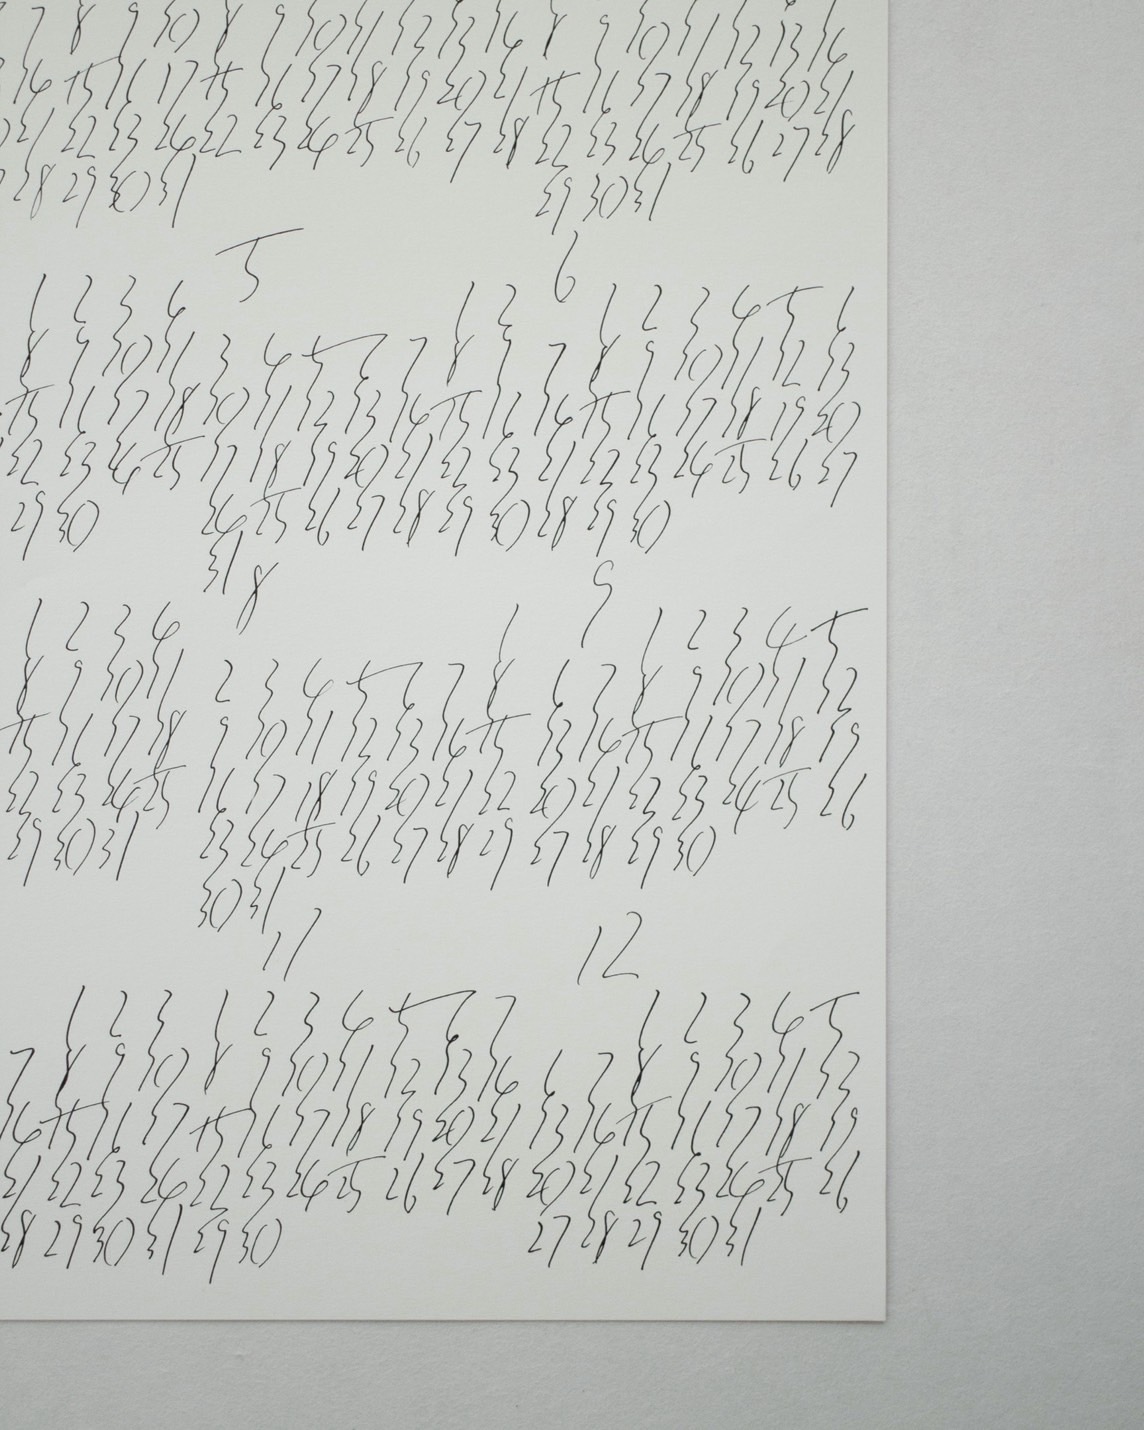 7 8 9 10 8 9 10 11 12 13 14 8 9 10 11 12 13 14
14 15 16 17 15 16 17 18 19 20 21 15 16 17 18 19 20 21
21 22 23 24 22 23 24 25 26 27 28 22 23 24 25 26 27 28
28 29 30 31 29 30 31
5 6
1 2 3 4 1 2 1 2 3 4 5 6
8 9 10 11 3 4 5 6 7 8 9 7 8 9 10 11 12 13
15 16 17 18 10 11 12 13 14 15 16 14 15 16 17 18 19 20
22 23 24 25 17 18 19 20 21 22 23 21 22 23 24 25 26 27
29 30 24 25 26 27 28 29 30 28 29 30
31
8 9
1 2 3 4 1 1 2 3 4 5
8 9 10 11 2 3 4 5 6 7 8 6 7 8 9 10 11 12
15 16 17 18 9 10 11 12 13 14 15 13 14 15 16 17 18 19
22 23 24 25 16 17 18 19 20 21 22 20 21 22 23 24 25 26
29 30 31 23 24 25 26 27 28 29 27 28 29 30
30 31
11 12
1 2 3 1 2 3 4 5 6 7 1 2 3 4 5
7 8 9 10 8 9 10 11 12 13 14 6 7 8 9 10 11 12
14 15 16 17 15 16 17 18 19 20 21 13 14 15 16 17 18 19
21 22 23 24 22 23 24 25 26 27 28 20 21 22 23 24 25 26
28 29 30 31 29 30 27 28 29 30 31